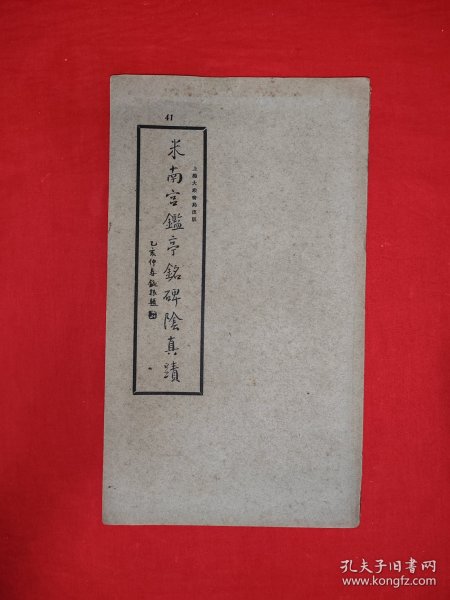 41
上海大眾書局出版
米南宮鑑亭銘碑陰真蹟
乙亥仲春
孔夫子旧书网
www.kongfz.com